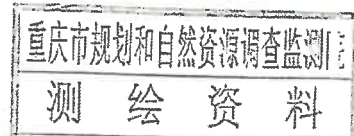 重庆市规划和自然资源调查监测院
测绘资料